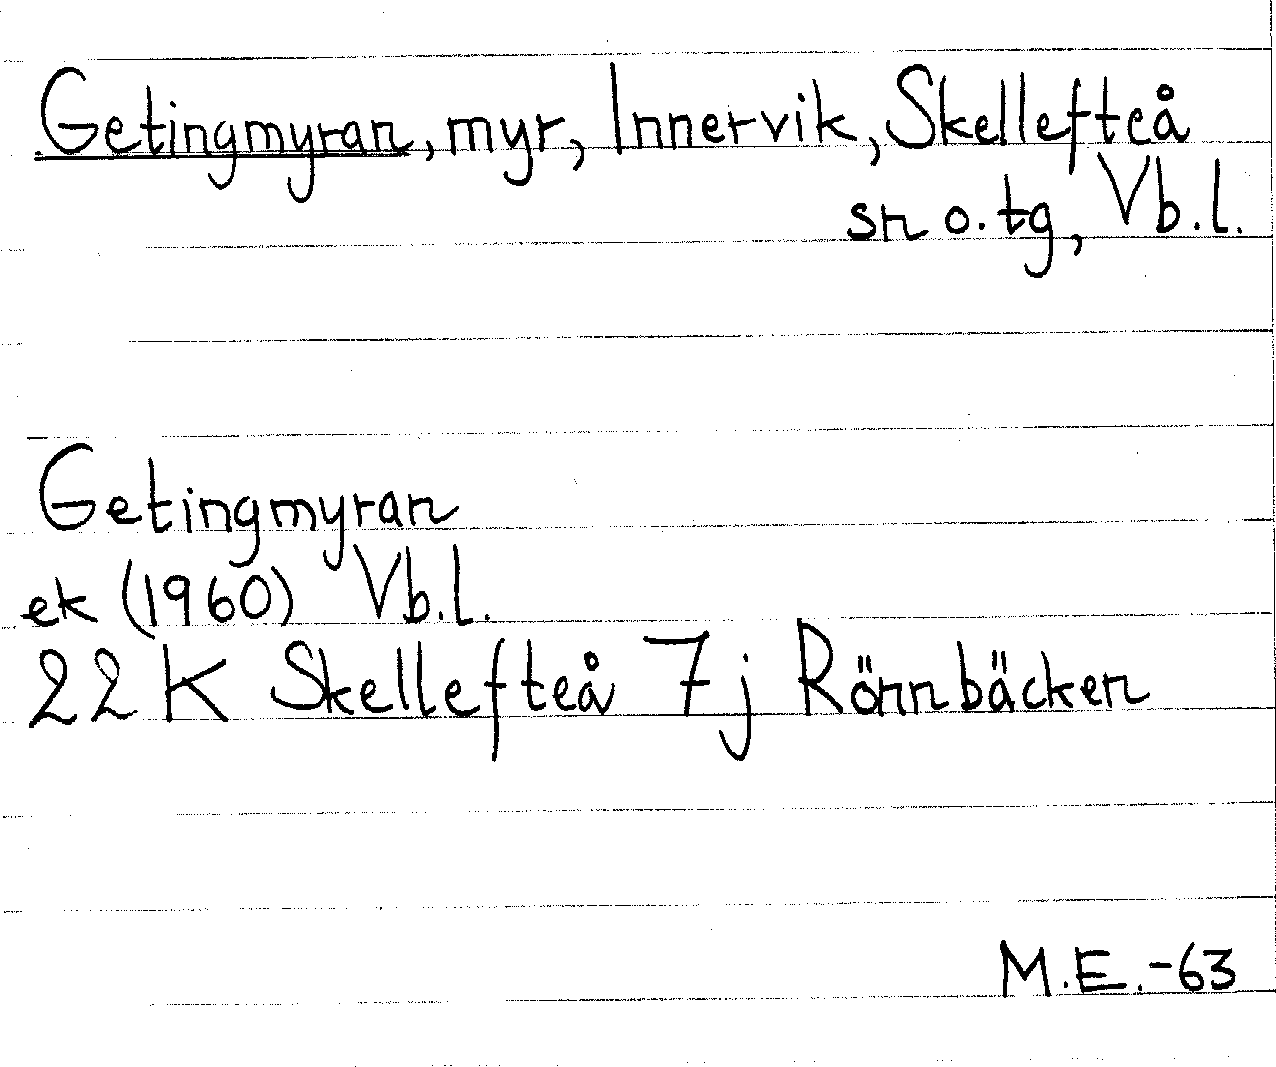 Getingmyran, myr, Innervik, Skellefteå
sn o. tg, Vb.l.
Getingmyran
ek (1960) Vb.l.
22 K Skellefteå 7j Rönnbäcken
M.E.-63